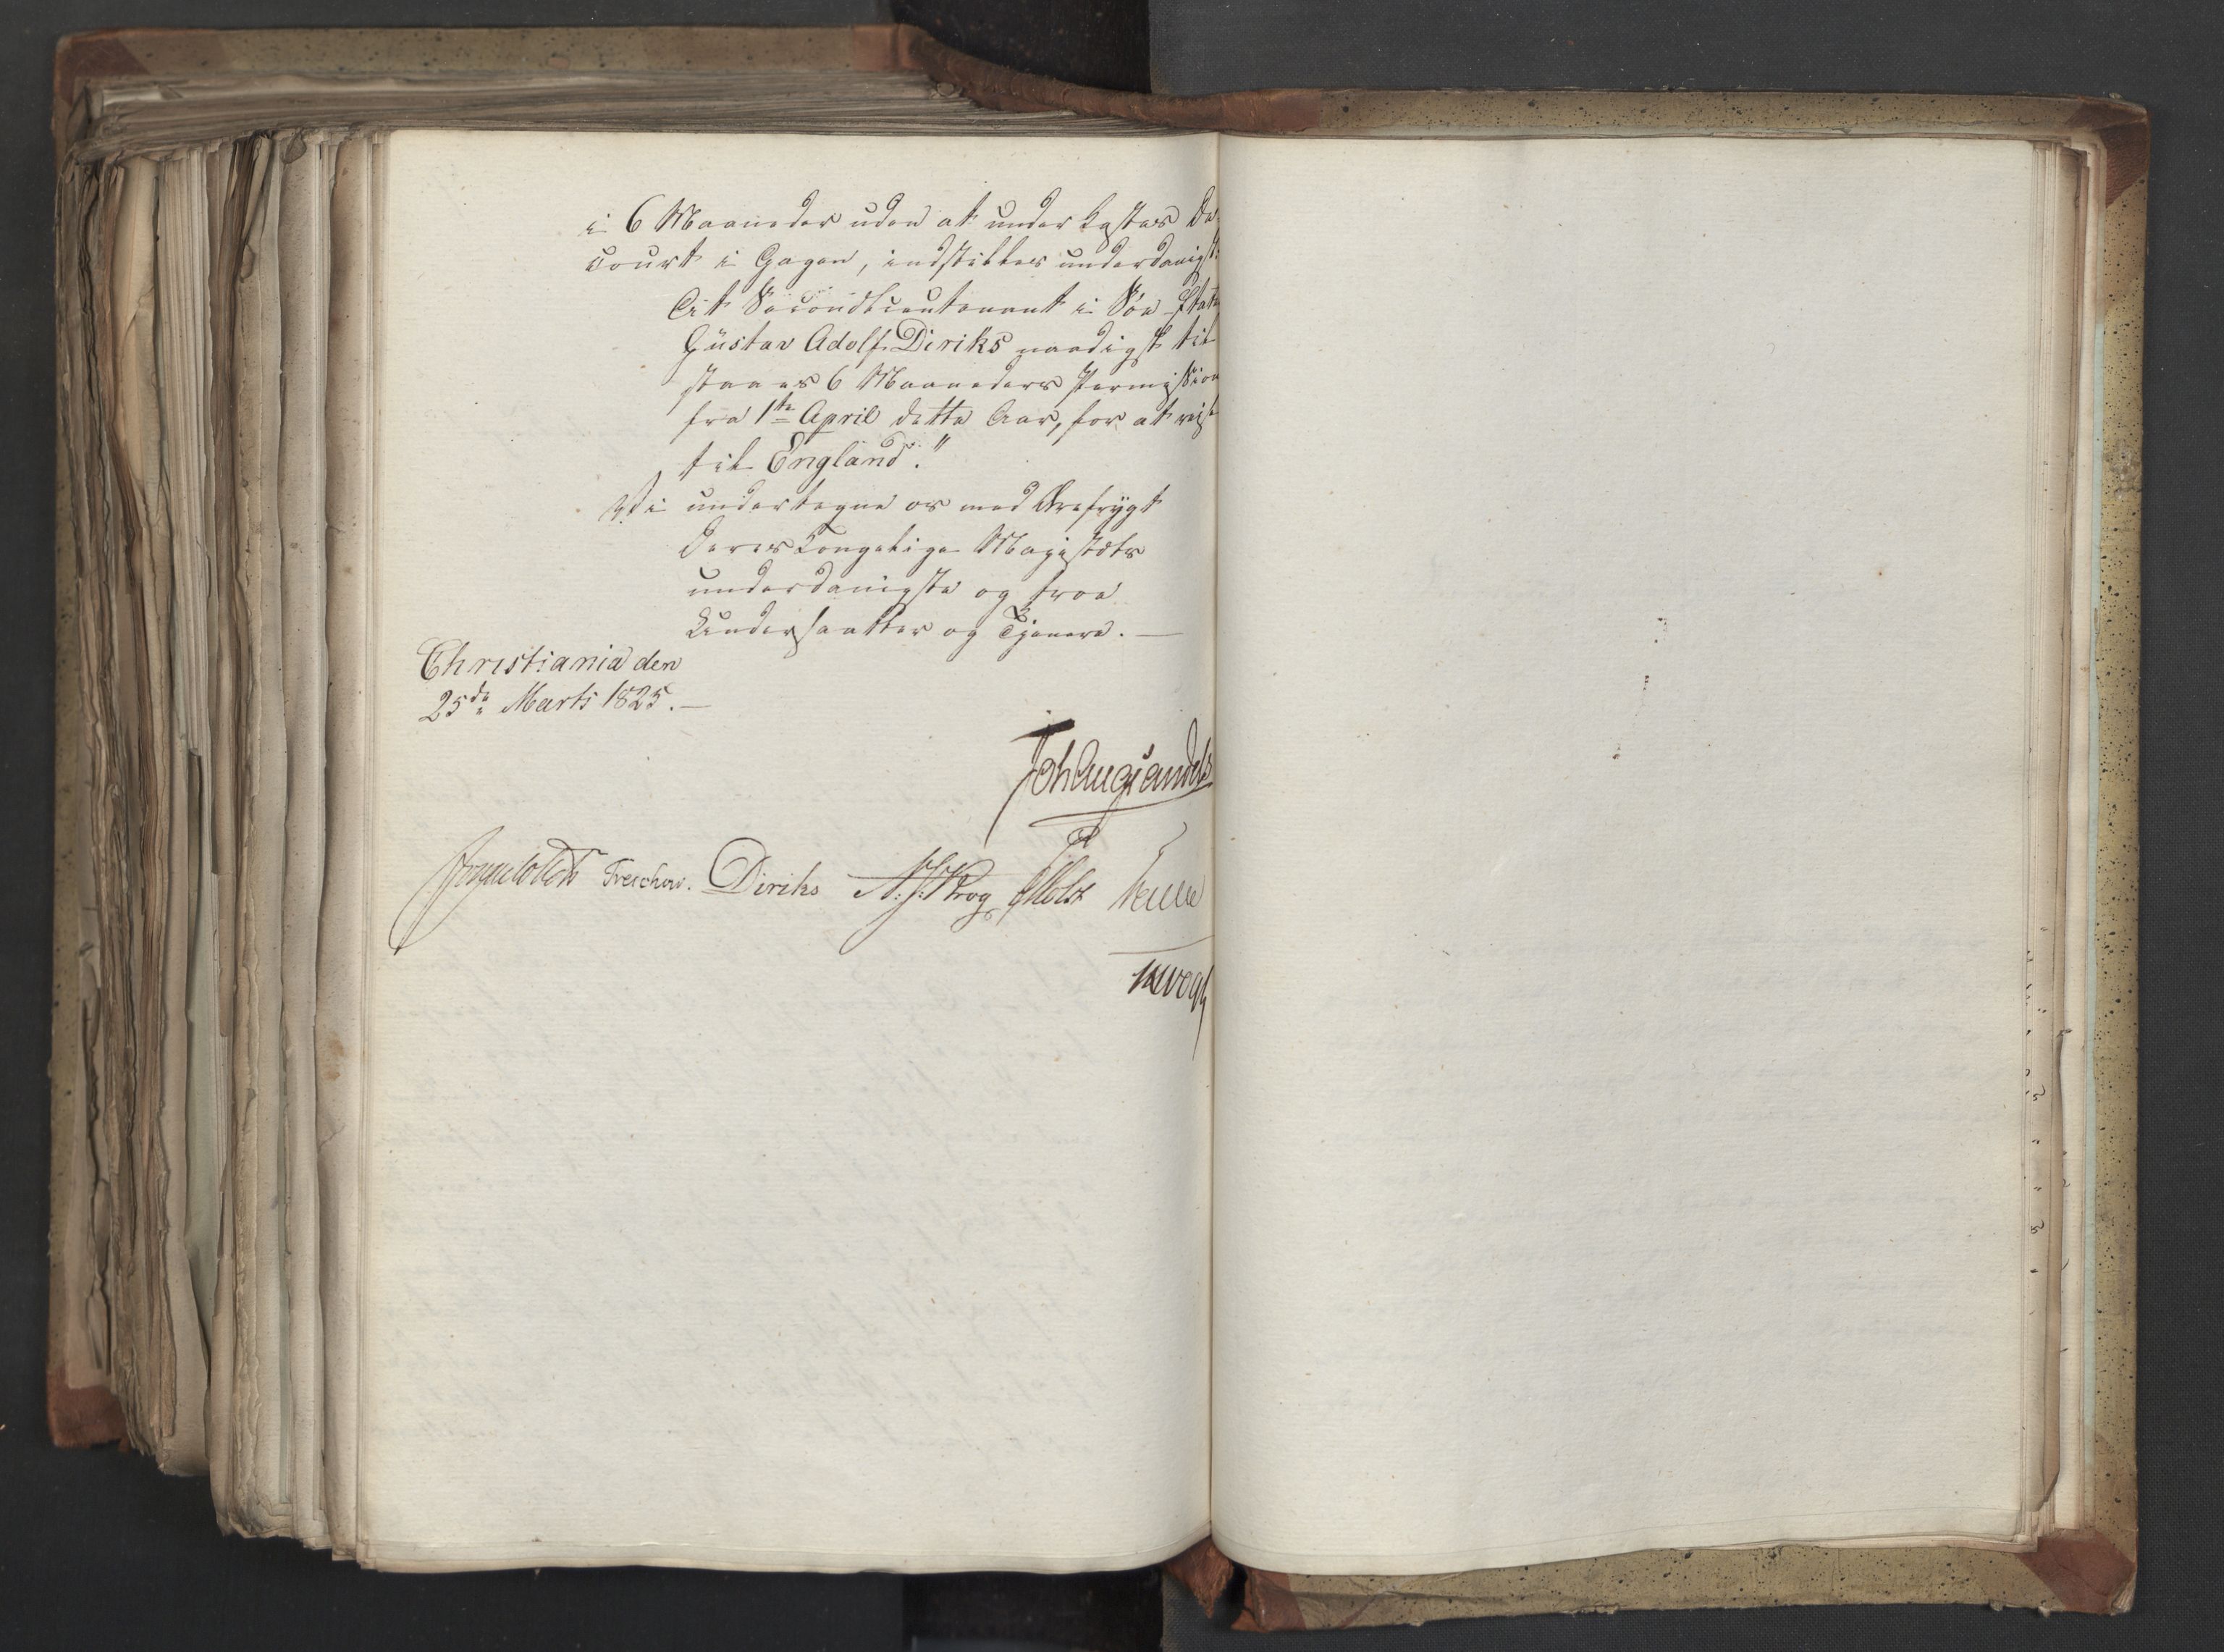 i 6 Maaneder uden at underkastes De-
court i Gagen, indstilles underdanigst:
At Secondlieutenant i Søe-Etaten
Güstav Adolf Diriks naadigst til-
staaes 6 Maaneders Permission
fra 1ste April dette Aar, for at reise
til England."
Vi undertegne os med Ærefrygt
Deres Kongelige Majestæts
underdanigste og troe
Undersaatter og Tjenere. —
Christiania den
25de Marts 1825. —
Joh Aug Sandels
Treschow. Diriks N. J. Krog PHolst
JHVogt